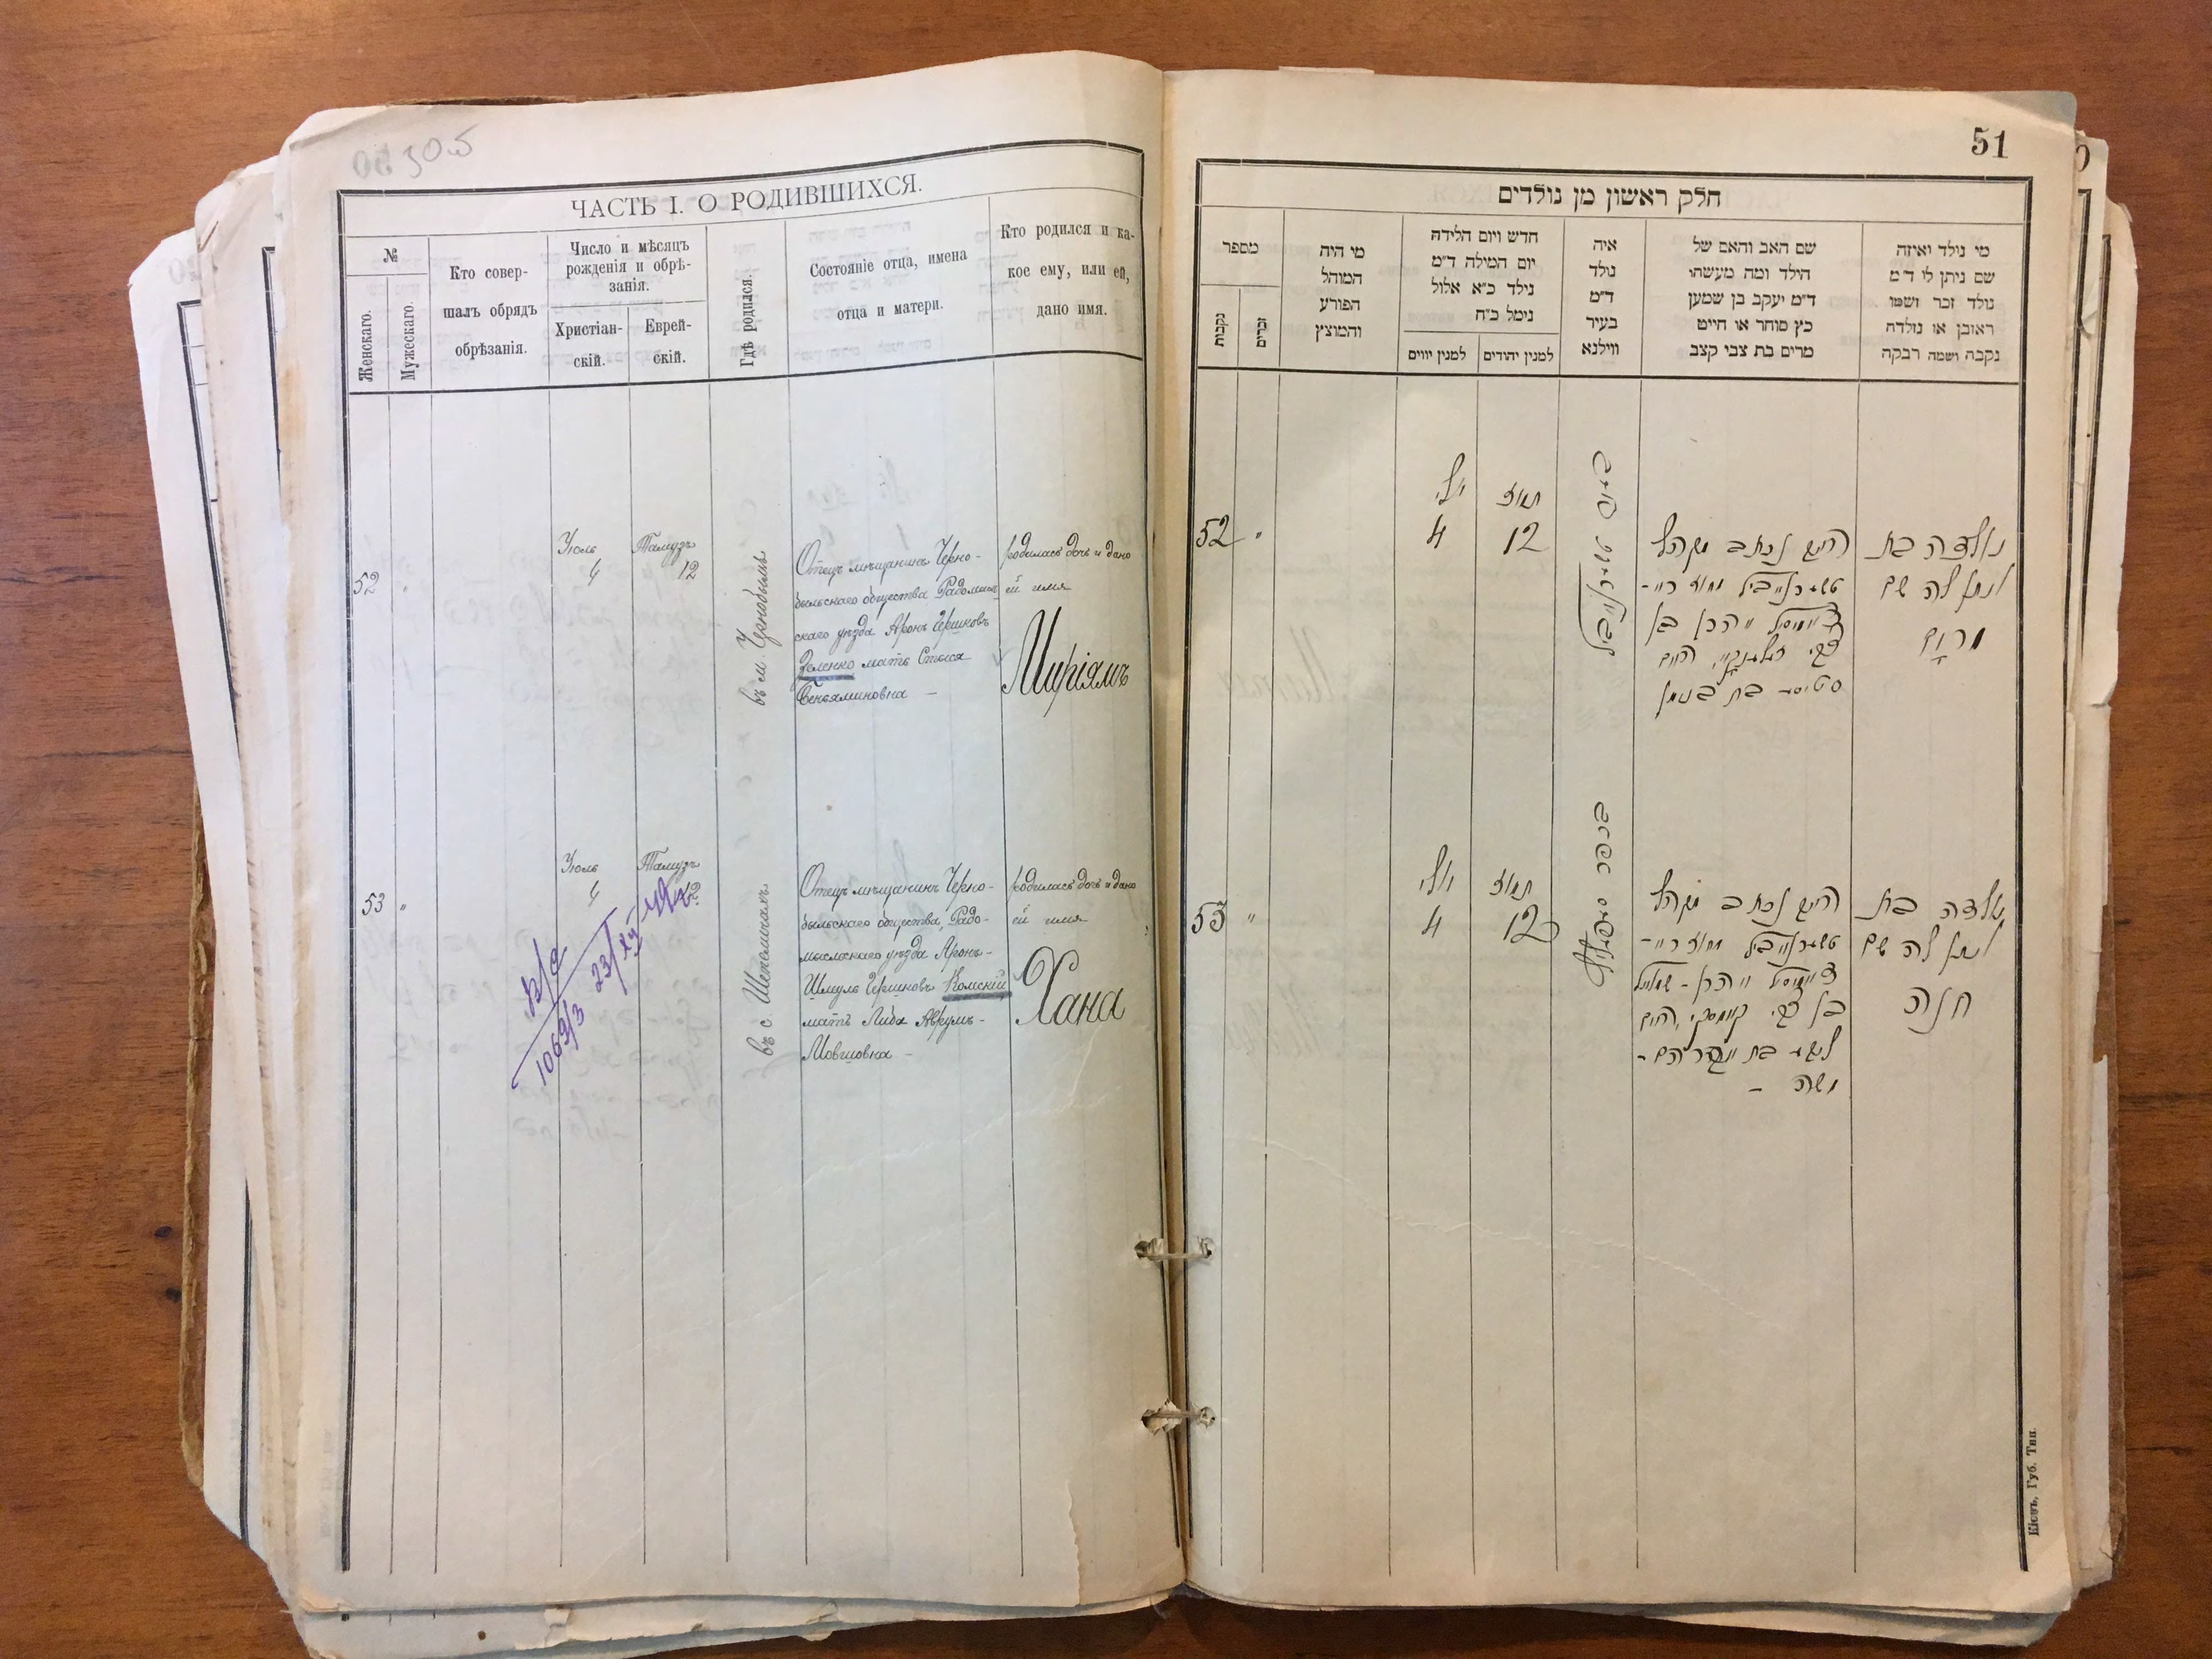 ЧАСТЬ I. О РОДИВШИХСЯ.
№
Женскаго.
Мужескаго.
Кто совер-
шалъ обрядъ
обрѣзанія.
Число и мѣсяцъ
рожденія и обрѣ-
занія.
Христіан-
скій.
Еврей-
скій.
Гдѣ родился.
Состояніе отца, имена
отца и матери.
Кто родился и ка-
кое ему, или ей,
дано имя.
52 "
Іюль
4
Тамузъ
12
въ м. Чернобылѣ
Отецъ мѣщанинъ Черно-
быльскаго общества Радомысль
скаго уѣзда Аронъ Гершковъ
Зеленко мать Стыся
Беньяминовна —
родилась дочь и дано
ей имя
Миріямъ
53 "
Іюль
4
Тамузъ
12
1069/3 23/XII
въ с. Шепеличахъ
Отецъ мѣщанинъ Черно-
быльскаго общества, Радо-
мысльскаго уѣзда Аронъ-
Шмуль Гершковъ Комскій
мать Либа Аврумъ-
Мовшовна —
родилась дочь и дано
ей имя
Хана
51
חלק ראשון מן נולדים
מספר
נקבות
זכרים
מי היה
המוהל
הפורע
והמוצץ
חדש ויום הלידה
יום המילה ד"מ
נילד כ"א אלול
נימל כ"ח
למנין יווים
למנין יהודים
איה
נולד
ד"מ
בעיר
ווילנא
שם האב והאם של
הילד ומה מעשהו
ד"מ יעקב בן שמען
כץ סוחר או חייט
מרים בת צבי קצב
מי נילד ואיזה
שם ניתן לי ד"מ
נולד זכר ושמו
ראובן או נולדה
נקבה ושמה רבקה
52 "
יולי
4
תמוז
12
האיש נכתב מקהל
בת בנימן
נולדה בת
ונתן לה שם
מרים
53 "
יולי
4
תמוז
12
בכפר
האיש נכתב מקהל
משה –
נולדה בת
ונתן לה שם
חנה
Кіевъ, Губ. Тип.